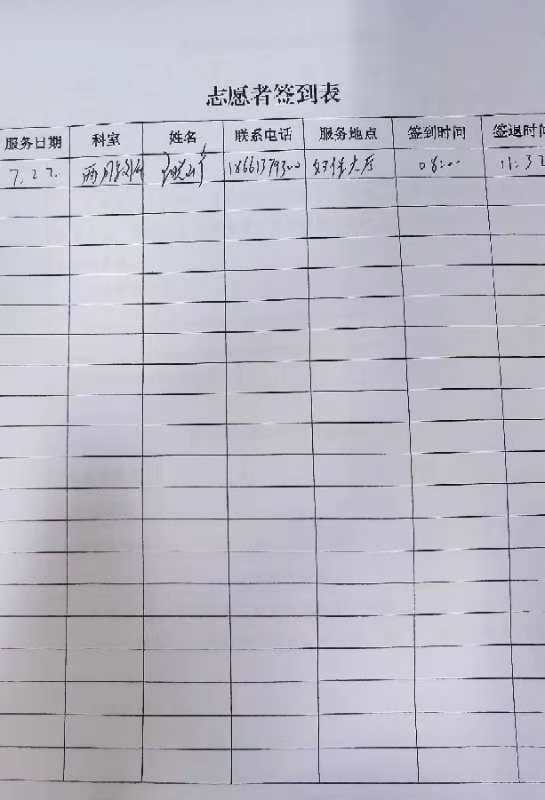 志愿者签到表
服务日期 科室 姓名 联系电话 服务地点 签到时间 签退时间
7.27. 18661379300 大厅 08:00 11:32